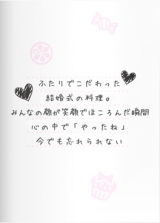 ふたりでこだわった
結婚式の料理。
みんなの顔が笑顔でほころんだ瞬間
心の中で「やったね」
今でも忘れられない